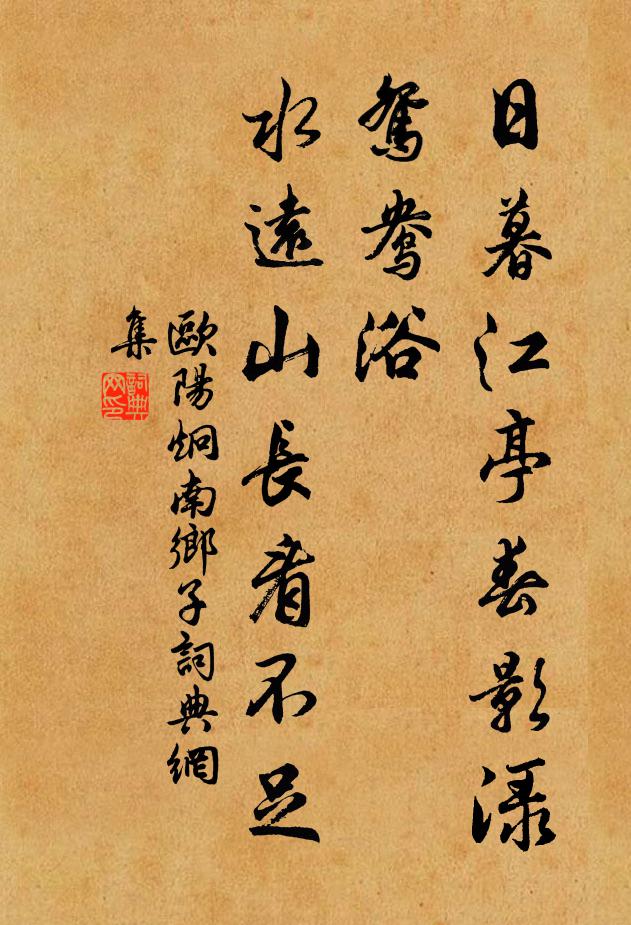 日暮江亭春影渌
鸳鸯浴
水遠山長看不足
歐陽炯南鄉子詞典網
集
詞典
网印